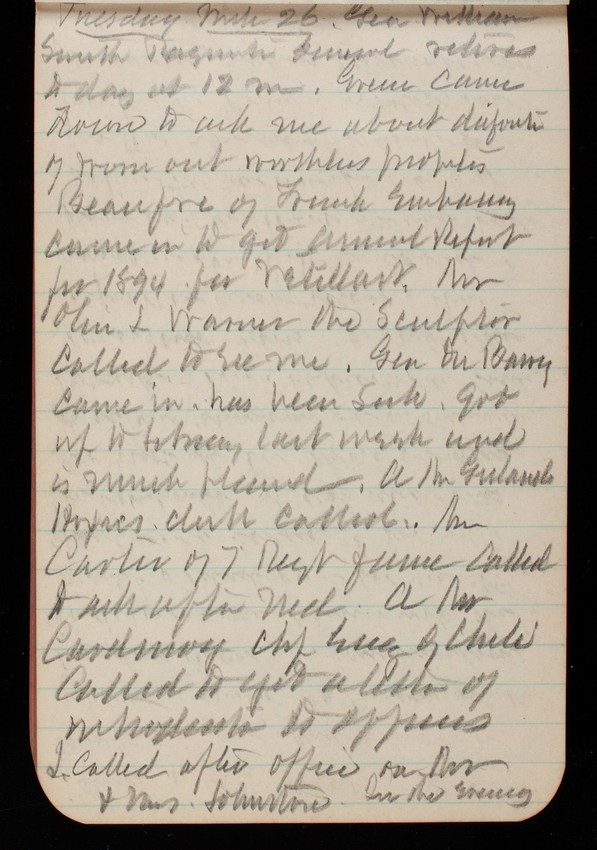 Tuesday Mch 26. Gen William
Smith Paymaster General retires
to day at 12 m. Greene came
down to ask me about
of worn out worthless
of French Embassy
came in to get Annual Report
for 1894 for Mr
Olin L Warner the Sculptor
called to see me. Gen Du Barry
came in. has been sick. got
up to last week and
is much pleased. A Mr
clerk called. Mr
Carter of 7 Regt fame called
to ask after Ned. A Mr
Chf Eng of Chili
Called to get a letter of
to officers
I called after office on Mr
& Mrs. Johnstone. In the Evening